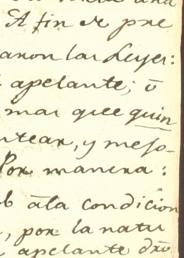 A fin de pre
caron las Leyes:
apelante; ó
mas que quin
ntear, y mejo-
Por manera:
ò âla condicion
, por la natu
apelante dro